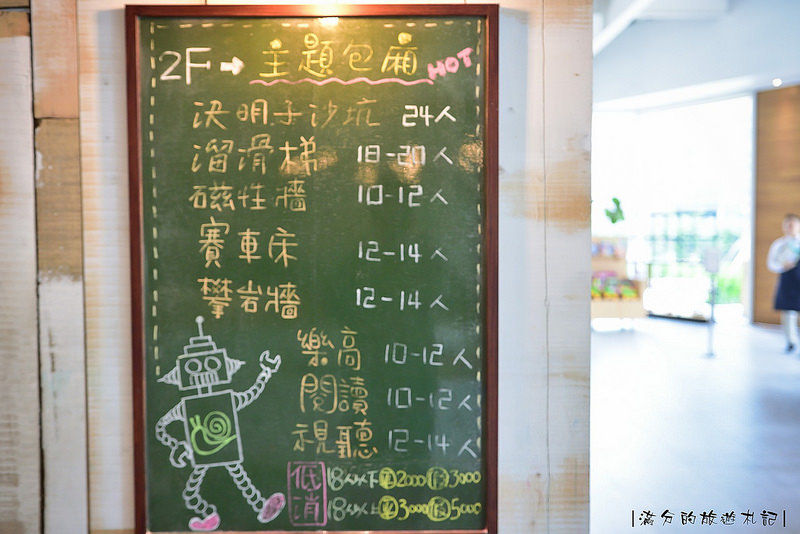 2F→ 主題包廂 HOT
決明子沙坑 24人
溜滑梯 18-20人
磁性牆 10-12人
賽車床 12-14人
攀岩牆 12-14人
樂高 10-12人
閱讀 10-12人
視聽 12-14人
低消 18人以下 平2000 假3000
18人以上 平3000 假5000
|滿分的旅遊札記|